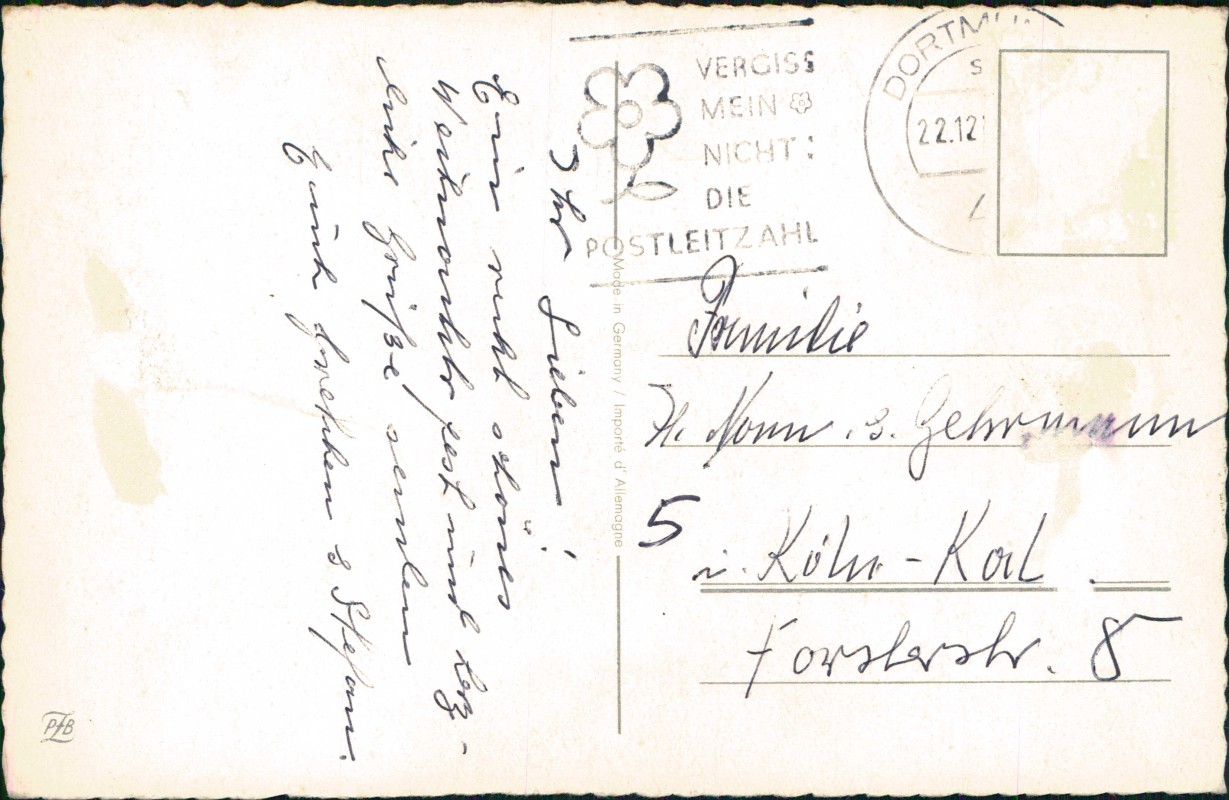 Ihr Lieben!
Ein recht schönes
Weihnachtsfest und herz-
liche Grüße senden
Euch Gretchen & Stefan.
VERGISS
MEIN
NICHT
DIE
POSTLEITZAHL
DORTMU
22.12
Made in Germany / Importé d'Allemagne
Familie
H. Nonn &. Gehrmann
5
i. Köln-Kal
Forsterstr. 8
PFB